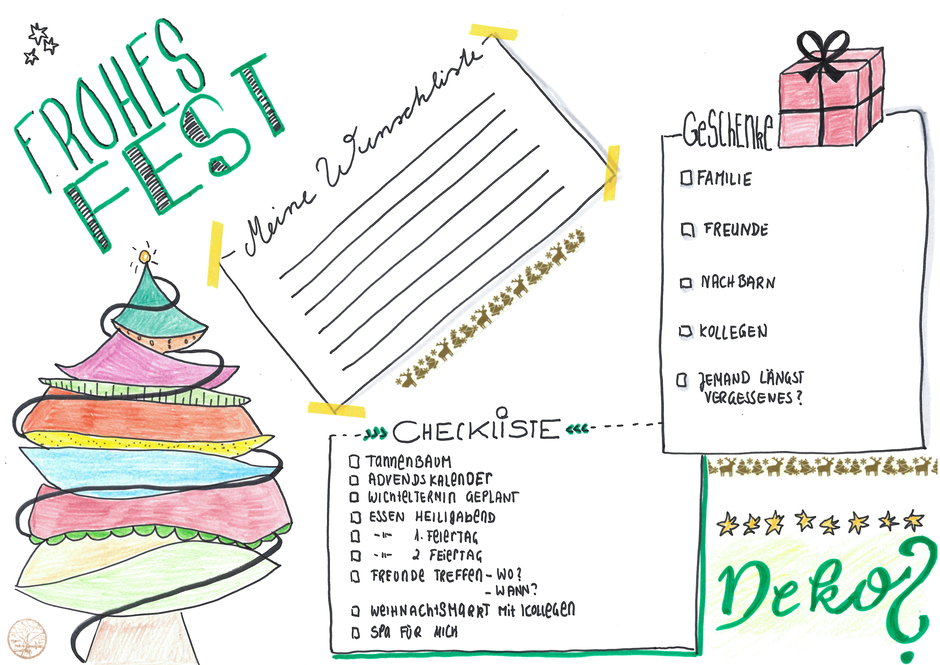 FROHES
FEST
Meine Wunschliste
GESCHENKE
FAMILIE
FREUNDE
NACHBARN
KOLLEGEN
JEMAND LÄNGST
VERGESSENES?
CHECKLISTE
TANNENBAUM
ADVENDSKALENDER
WICHTELTERMIN GEPLANT
ESSEN HEILIGABEND
-"- 1. FEIERTAG
-"- 2 FEIERTAG
FREUNDE TREFFEN - WO?
- WANN?
WEIHNACHTSMARKT MIT KOLLEGEN
SPA FÜR MICH
Deko?